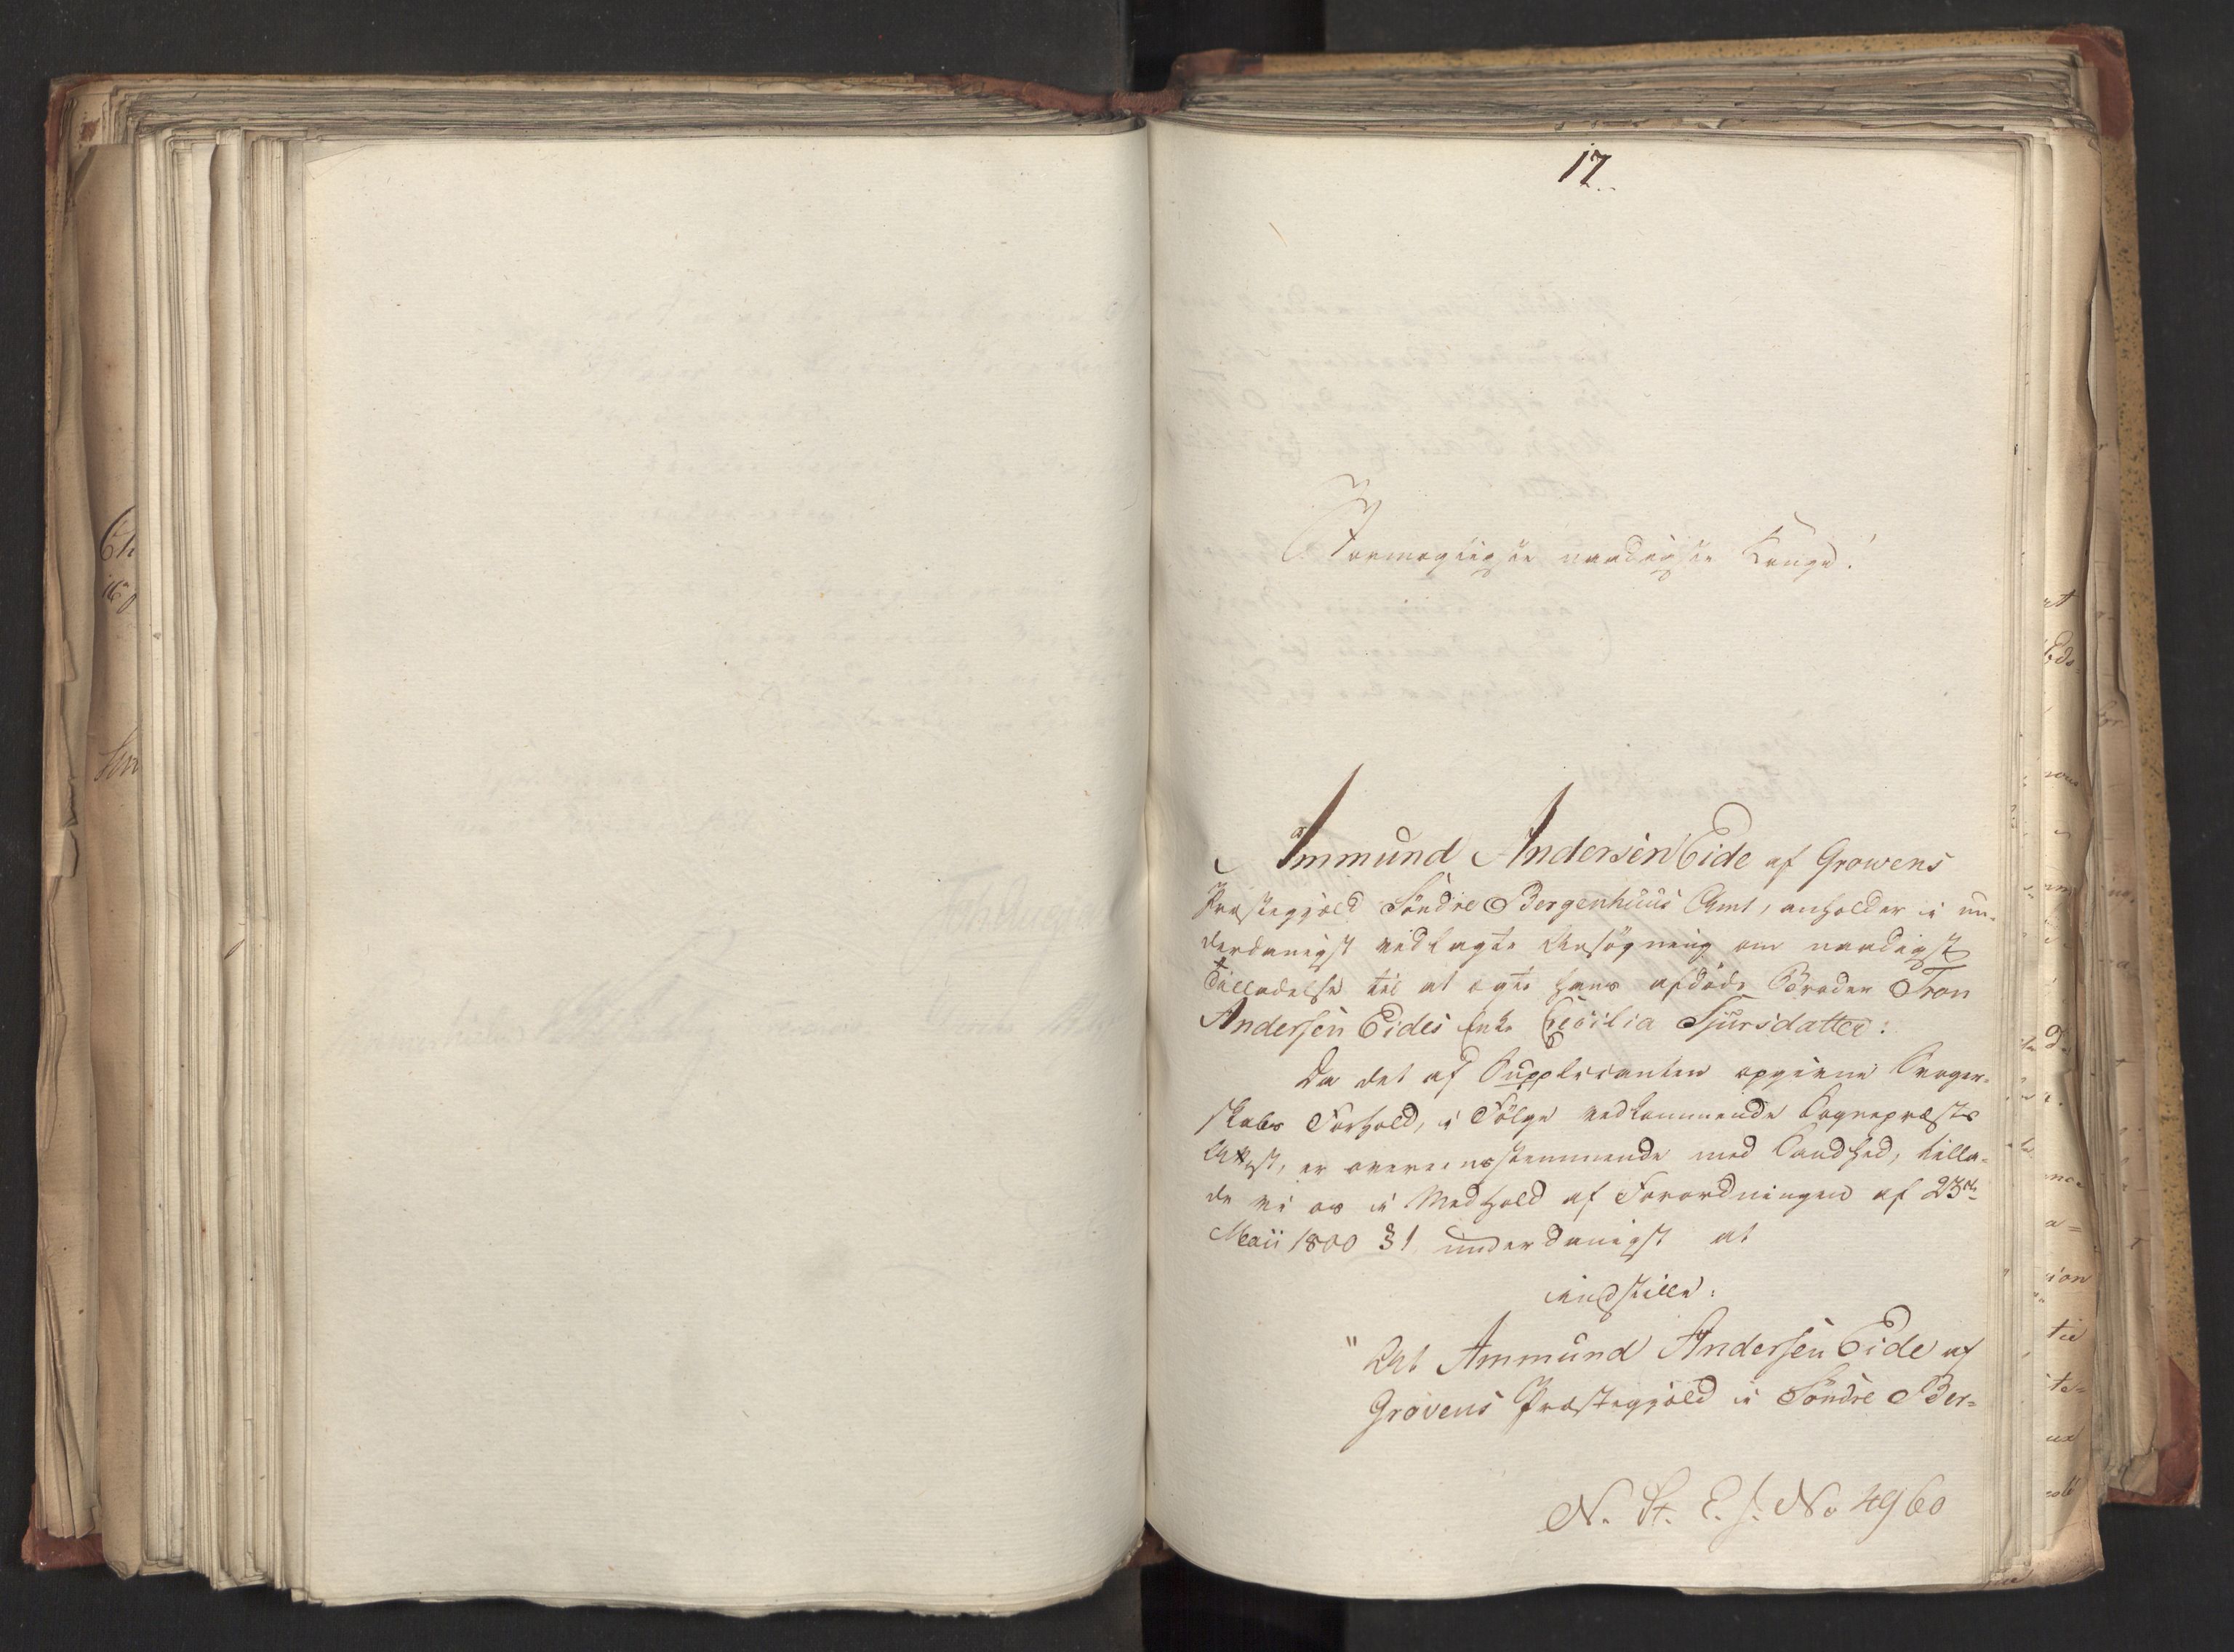 17.
Stormægtigste naadigste Konge!
Ammund Andersen Eide af Growens
Præstegjæld Söndre Bergenhuus Amt, anholder i un-
derdanigst vedlagte Ansögning om naadigst
Tilladelse til at ægte hans afdöde Broder Tron
Andersen Eides Enke Cecilia Sjursdatter:
Da det af Supplicanten opgivne Svoger-
skabs Forhold, i Fölge vedkommende Sognepræsts
Attest, er overeensstemmende med Sandhed, tilla-
de vi os i Medhold af Forordningen af 23de
Maii 1800 § 1 underdanigst at
indstille:
"At Ammund Andersen Eide af
Gravens Præstegjæld i Söndre Ber-
N. St. E. J. No 4960